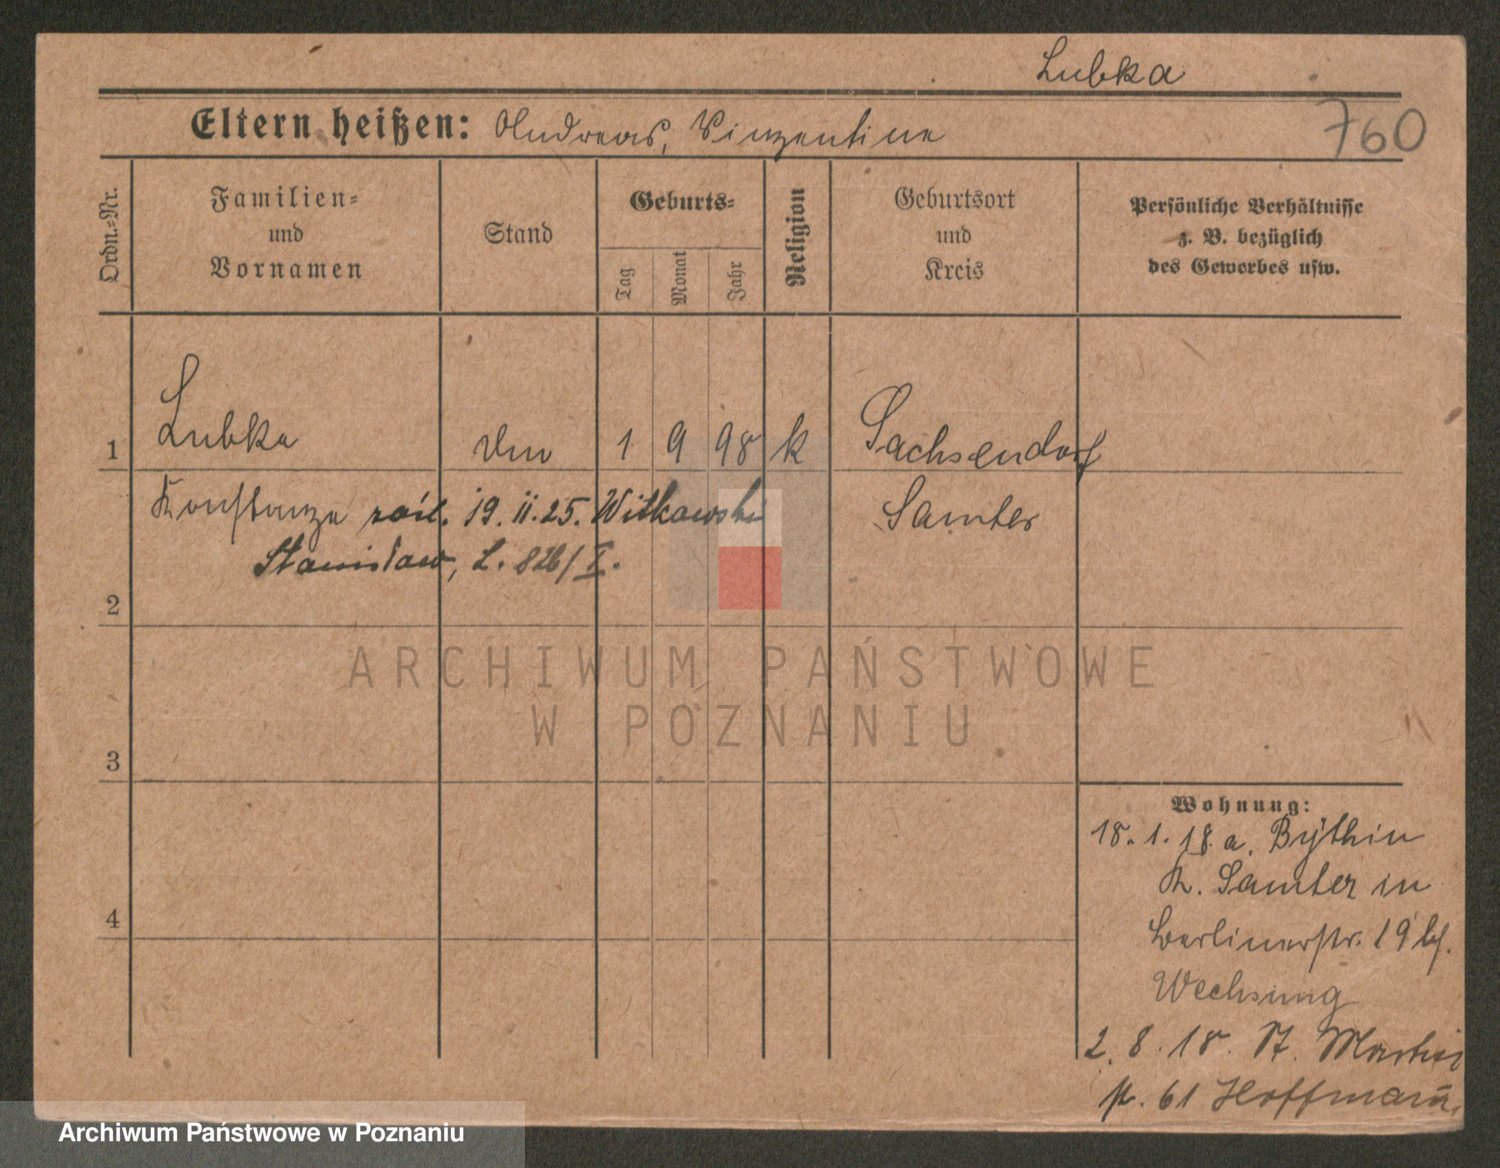 Lubka
760
Eltern heißen: Andreas, Vinzentine
Ordn.-Nr.
Familien-
und
Vornamen
Stand
Geburts-
Tag
Monat
Jahr
Religion
Geburtsort
und
Kreis
Persönliche Verhältnisse
z. B. bezüglich
des Gewerbes usw.
1 Lubka 1 9 98 k Sachsendorf
Konstanze zaśl. 19.II.25. Witkowski Samter
Stanisław, L. 826/I.
2
3
4
Wohnung:
18. 1. 18. a. Bythin
K. Samter in
Berlinerstr. 19 bf.
Wechsung
2. 8. 18. St. Martin
st. 61 Hoffmann.
ARCHIWUM PAŃSTWOWE
W POZNANIU
Archiwum Państwowe w Poznaniu